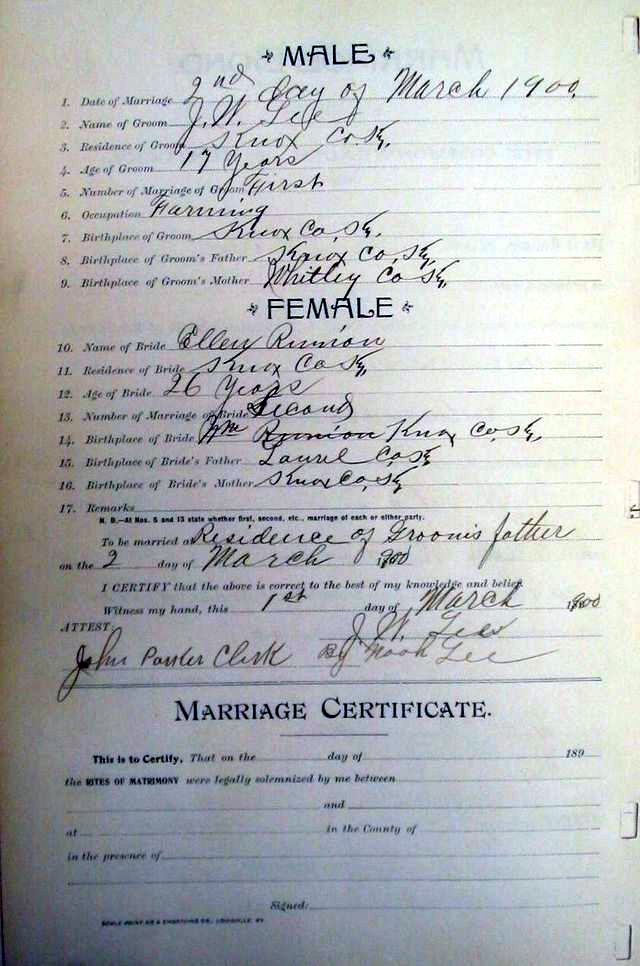 MALE
1. Date of Marriage 2nd day of March 1900.
2. Name of Groom J. W. Lee
3. Residence of Groom Knox Co. Ky.
4. Age of Groom 17 Years
5. Number of Marriage of Groom First
6. Occupation Farming
7. Birthplace of Groom Knox Co. Ky.
8. Birthplace of Groom's Father Knox Co. Ky.
9. Birthplace of Groom's Mother Whitley Co Ky.
FEMALE
10. Name of Bride Ellen Runion
11. Residence of Bride Knox Co Ky.
12. Age of Bride 26 Years
13. Number of Marriage of Bride Second
14. Birthplace of Bride Wm Runion Knox Co. Ky.
15. Birthplace of Bride's Father Laurel Co. Ky
16. Birthplace of Bride's Mother Knox Co. Ky
17. Remarks
N. B.—At Nos. 5 and 13 state whether first, second, etc., marriage of each or either party.
To be married at Residence of Groom's father
on the 2 day of March 1900
I CERTIFY that the above is correct to the best of my knowledge and belief.
Witness my hand, this 1st day of March 1900
ATTEST: J. W. Lee
John Parker Clerk By Noah Lee
MARRIAGE CERTIFICATE.
This is to Certify, That on the day of 189
the RITES OF MATRIMONY were legally solemnized by me between
and
at in the County of
in the presence of
Signed: